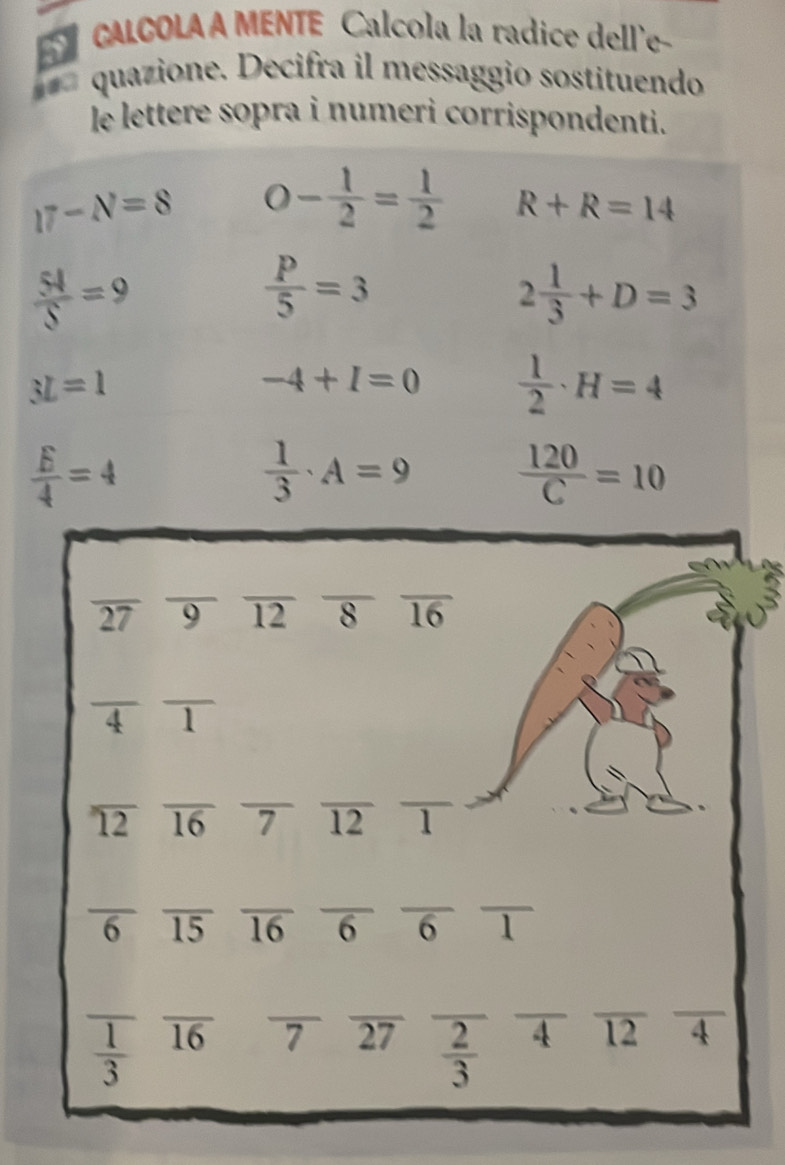 CALCOLA A MENTE Calcola la radice dell'e-
quazione. Decifra il messaggio sostituendo
le lettere sopra i numeri corrispondenti.
17 − N = 8 O − 1/2 = 1/2 R + R = 14
54/S = 9 P/5 = 3 2 1/3 + D = 3
3L = 1 −4 + I = 0 1/2 · H = 4
E/4 = 4 1/3 · A = 9 120/C = 10
27 9 12 8 16
4 1
12 16 7 12 1
6 15 16 6 6 1
1/3 16 7 27 2/3 4 12 4